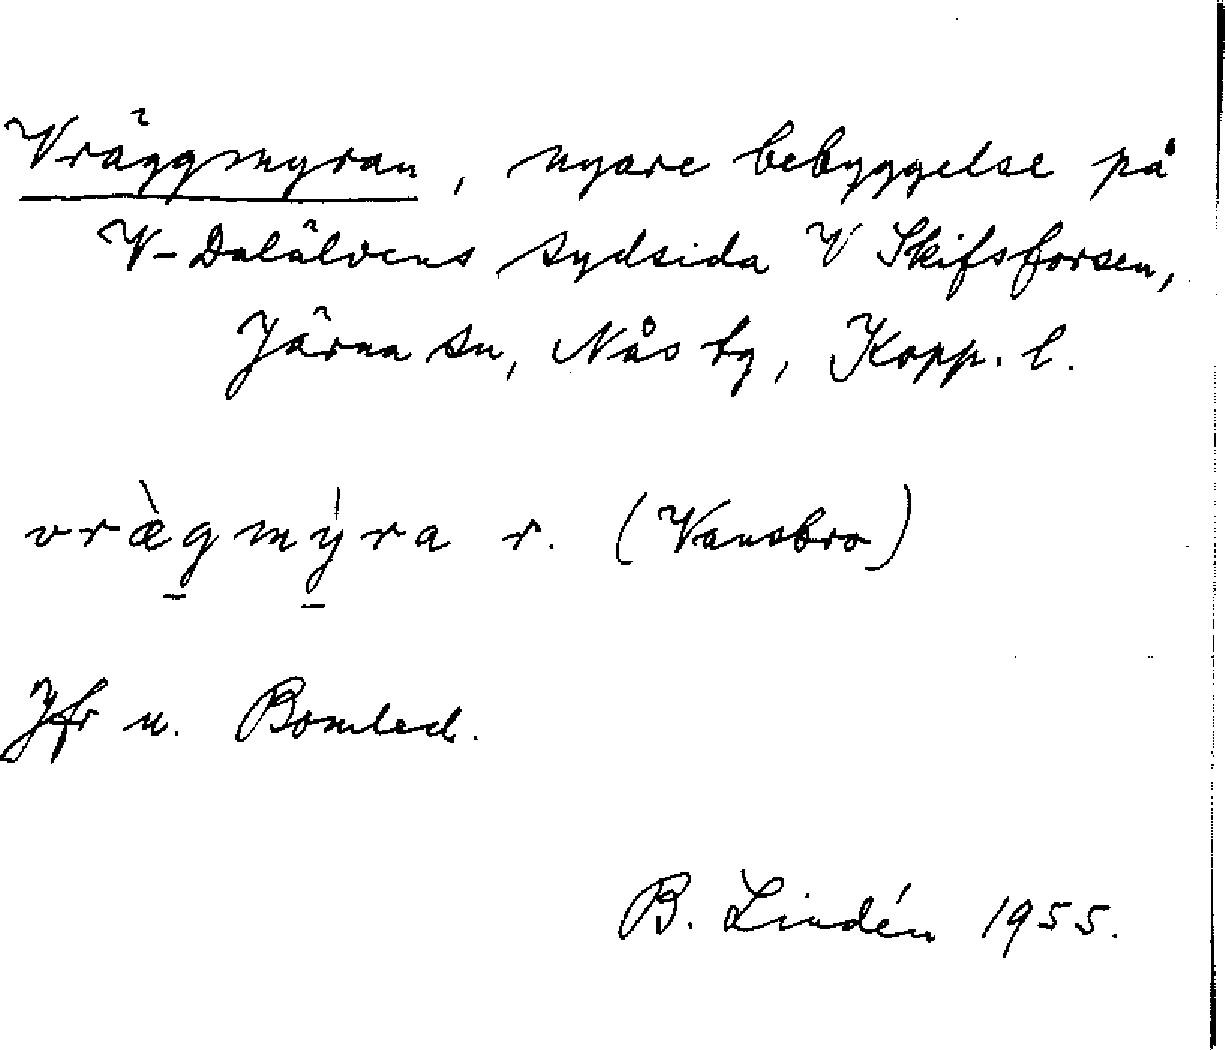 Vräggmyran, nyare bebyggelse på
V-Dalälvens sydsida V Skifsforsen,
Järna sn, Nås tg, Kopp. l.
vræ̀g̱mý̱ra r. (Vansbro)
Jfr u. Bomled.
B. Lindén 1955.